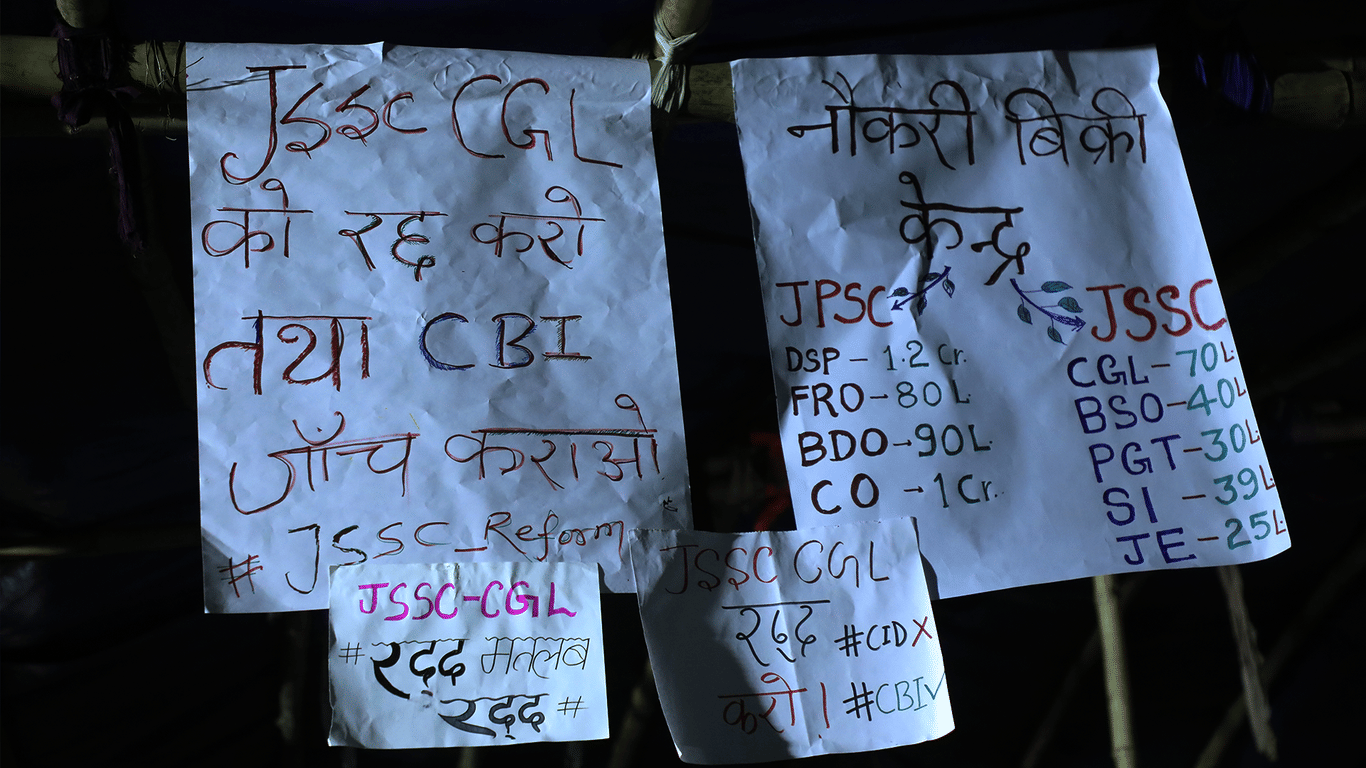 JSSC CGL
को रद्द करो
तथा CBI
जाँच कराओ
# JSSC_Reform
नौकरी बिक्री
केन्द्र
JPSC
DSP - 1.2 Cr.
FRO - 80 L
BDO - 90 L.
CO - 1 Cr.
JSSC
CGL - 70 L.
BSO - 40 L
PGT - 30 L
SI - 39 L
JE - 25 L
JSSC-CGL
# रद्द मतलब
रद्द #
JSSC CGL
रद्द #CID X
करो! #CBI ✓